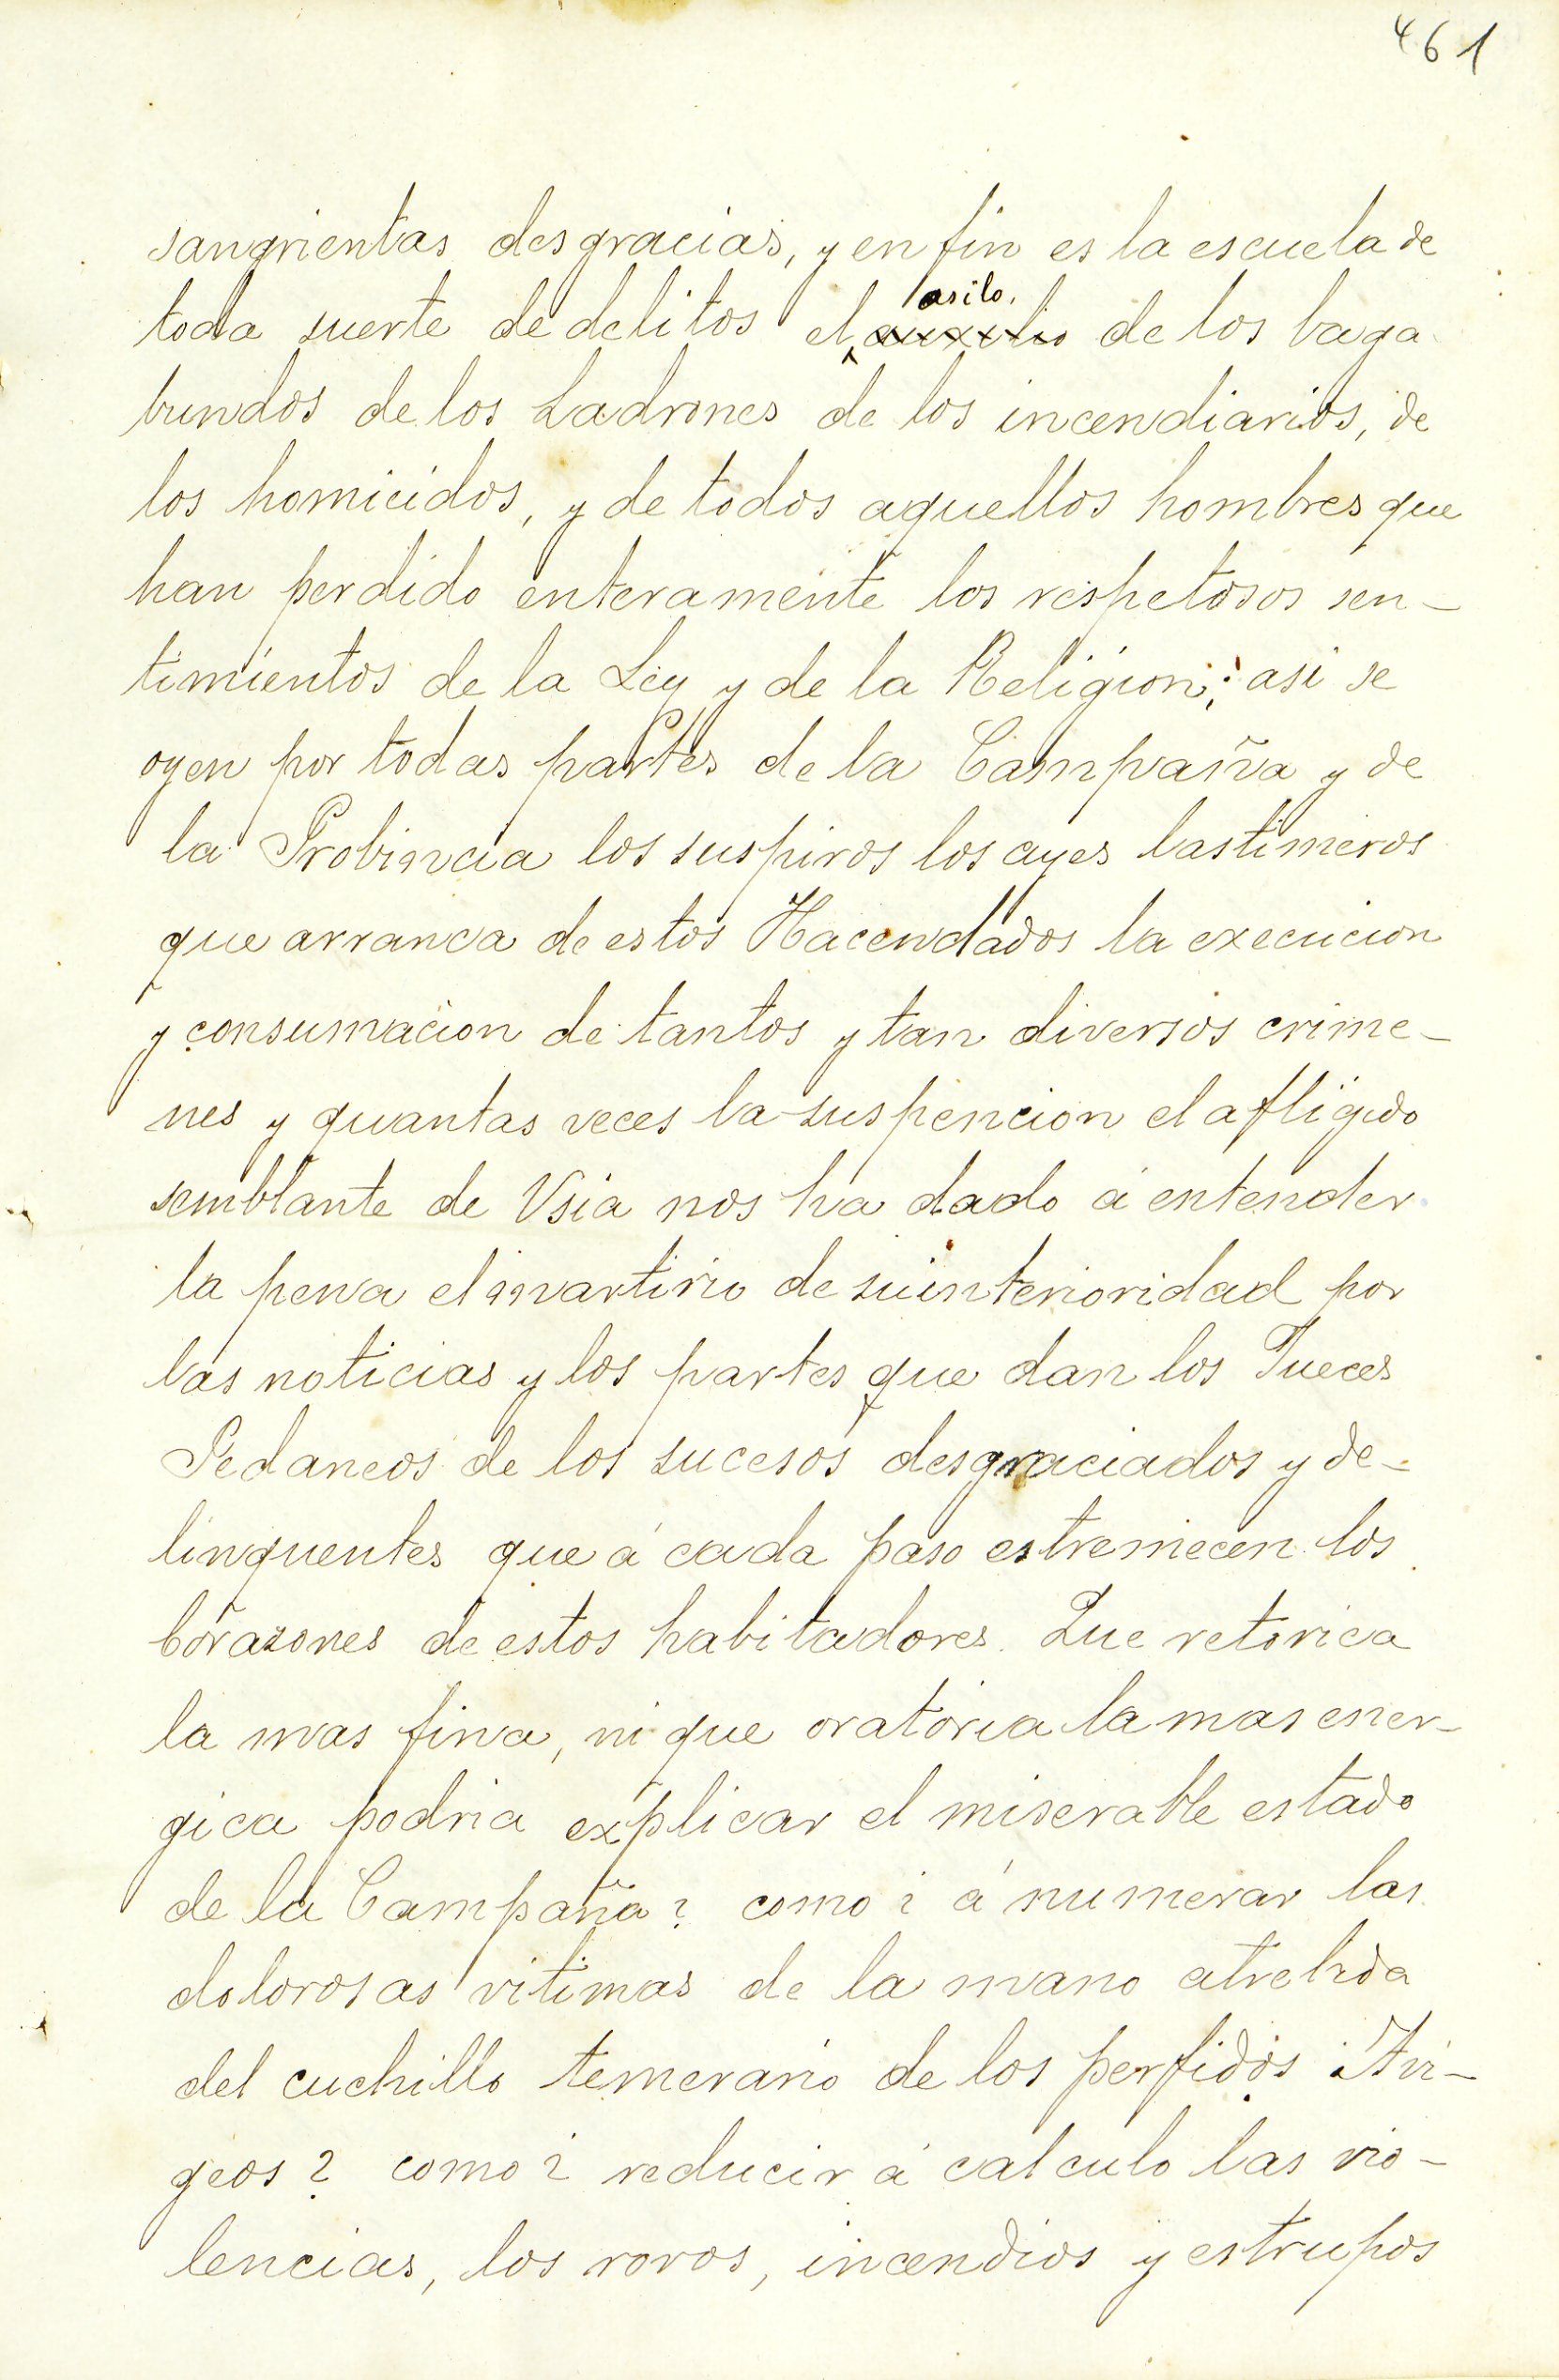 461
sangrientas desgracias, y en fin es la escuela de
asilo.
toda suerte de delitos el auxilio de los baga
bundos de los Ladrones de los incendiarios, de
los homicidos, y de todos aquellos hombres que
han perdido enteramente los respetosos sen-
timientos de la Ley, y de la Religion; asi se
oyen por todas partes de la Campaña y de
la Probincia los suspiros los ayes lastimeros
que arranca de estos Hacendados la execucion
y consumacion de tantos y tan diversos crime-
nes y quantas veces la suspencion el afligido
semblante de Vsia nos ha dado á entender
la pena el martirio de su interioridad por
las noticias y los partes que dan los Jueces
Pedaneos de los sucesos desgraciados y de-
linquentes que á cada paso estremecen los
Corazones de estos habitadores. Que retorica
la mas fina, ni que oratoria la mas ener-
gica podria explicar el miserable estado
de la Campaña? como? á numerar las
dolorosas vitimas de la mano atrebida
del cuchillo temerario de los perfidos
geos? como? reducir á calculo las vio-
lencias, los rovos, incendios y estrupos